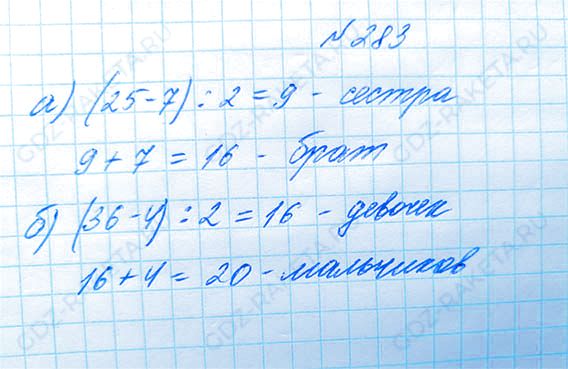 № 283
а) (25-7):2=9 - сестра
9+7=16 - брат
б) (36-4):2=16 - девочек
16+4=20 - мальчиков
GDZ-RAKETA.RU